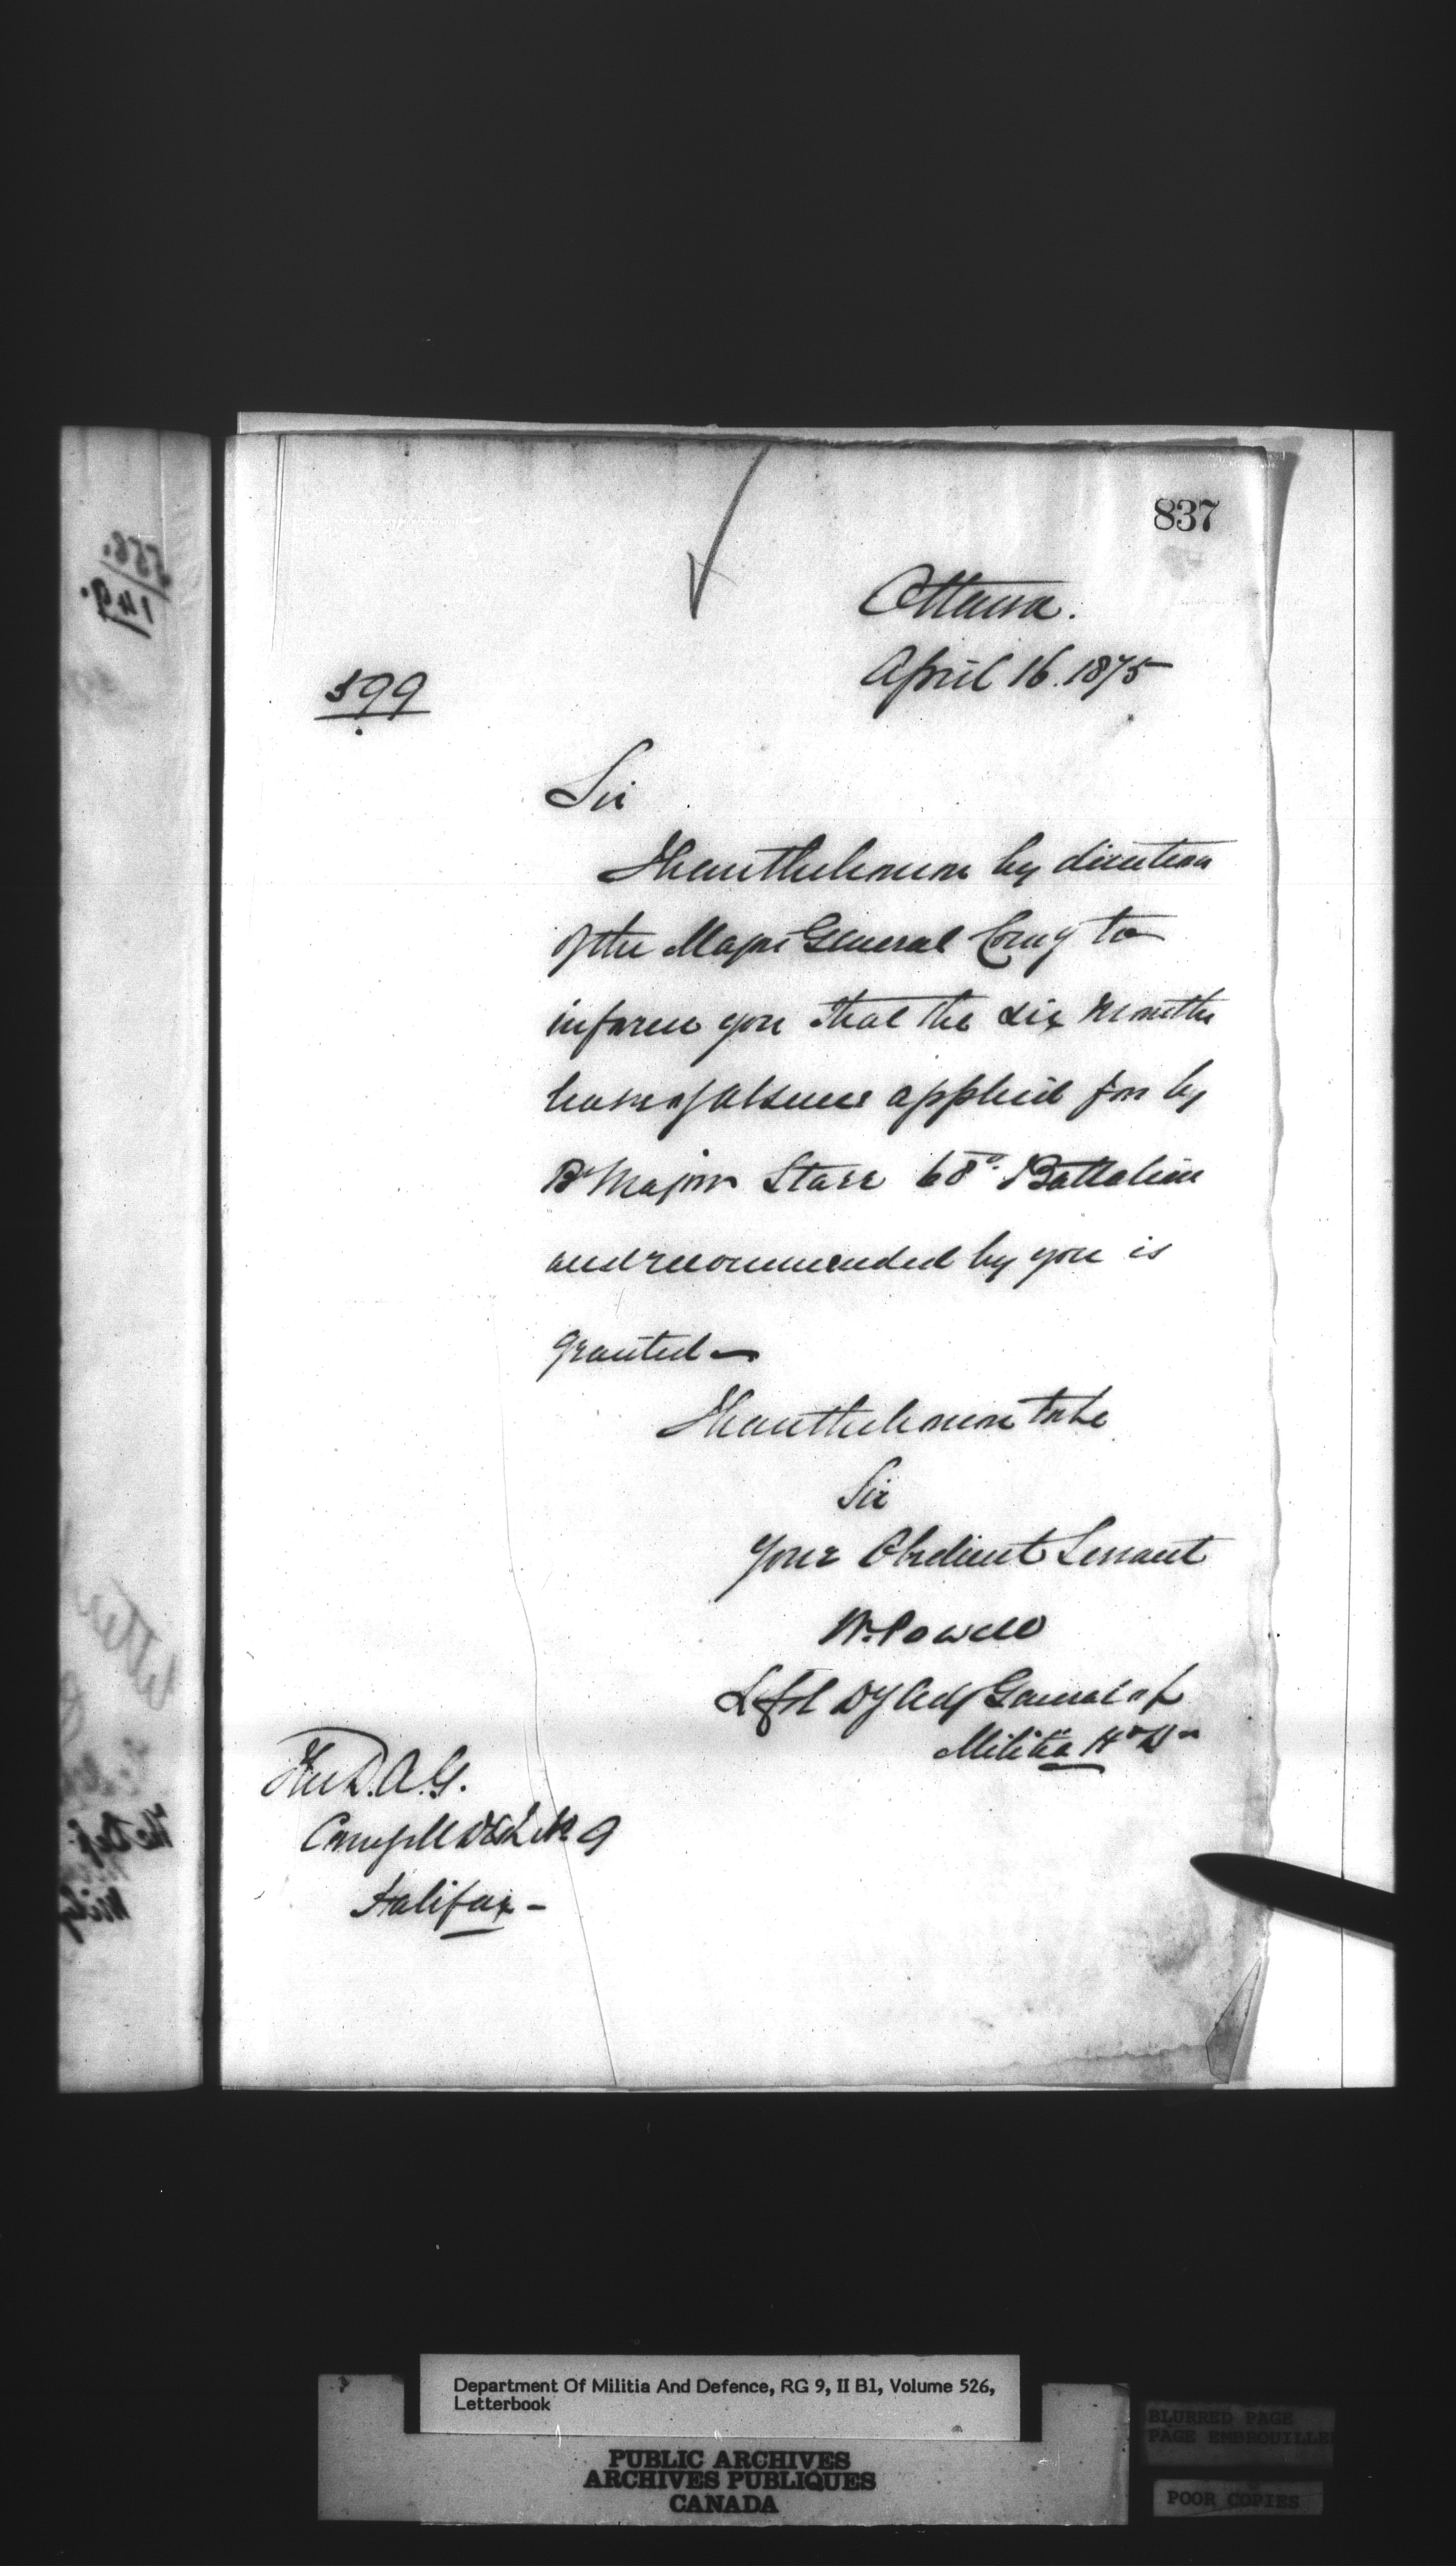 837
Ottawa.
April 16. 1875
599
Sir
I have the honor by direction
of the Major General Comg to
inform you that the six months
leave of absence applied for by
Bt Major Starr 68th Battalion
and recommended by you is
granted —
I have the honor to be
Sir
Your Obedient Servant
W. Powell
Lt Col Dy Adj General of
Militia Hd Qrs
The D.A.G.
Comg Mil Dist No 9
Halifax -
Department Of Militia And Defence, RG 9, II B1, Volume 526,
Letterbook
PUBLIC ARCHIVES
ARCHIVES PUBLIQUES
CANADA
BLURRED PAGE
PAGE EMBROUILLE
POOR COPIES